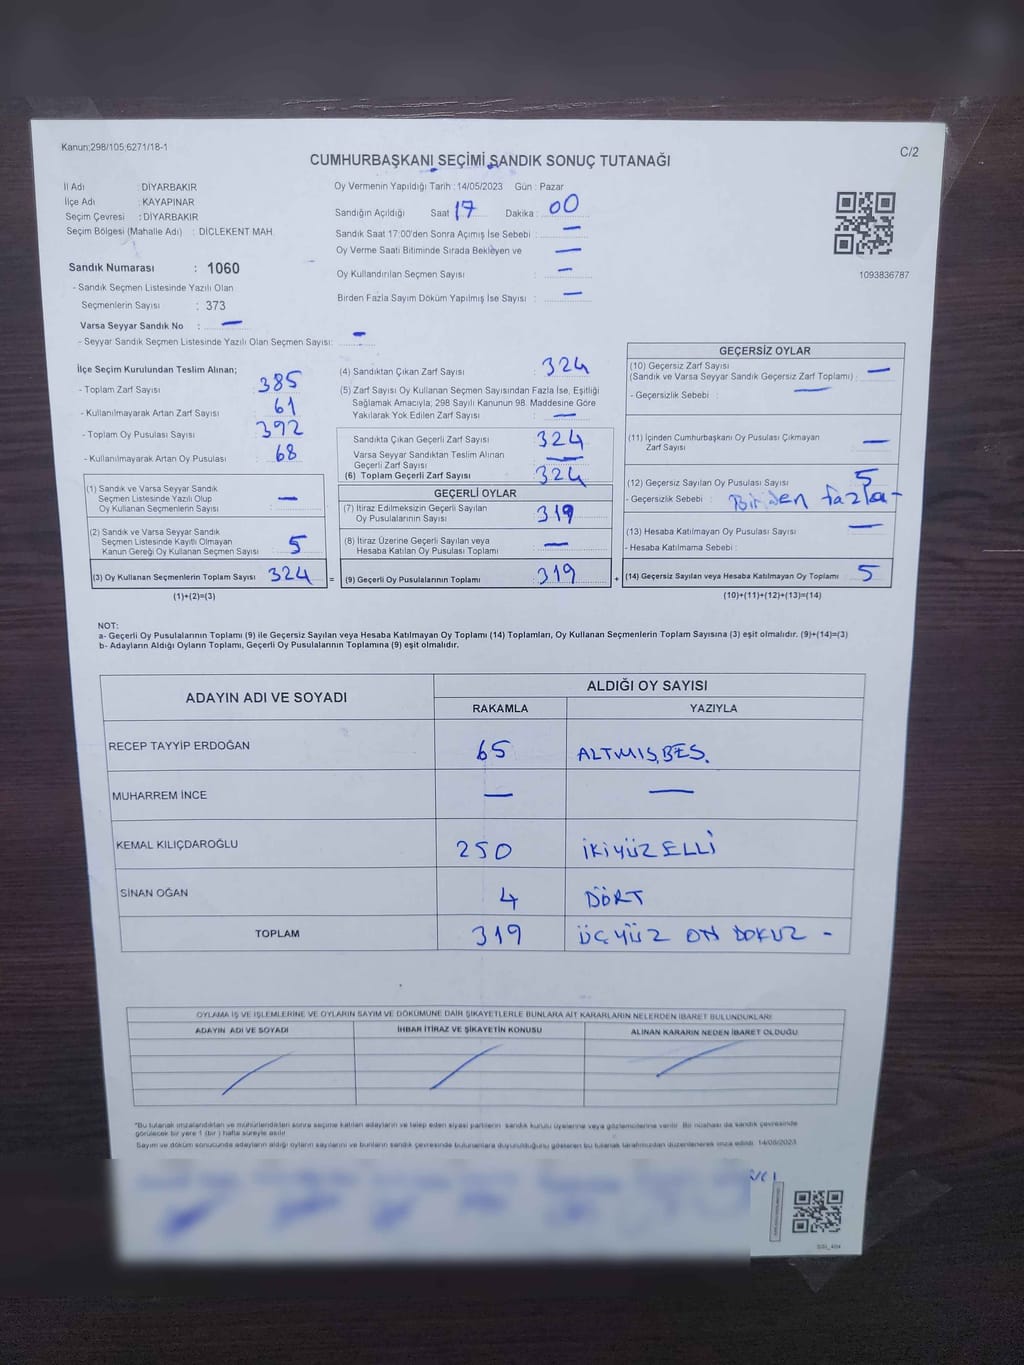 Kanun:298/105;6271/18-1
C/2
CUMHURBAŞKANI SEÇİMİ SANDIK SONUÇ TUTANAĞI
İl Adı : DİYARBAKIR
İlçe Adı : KAYAPINAR
Seçim Çevresi : DİYARBAKIR
Seçim Bölgesi (Mahalle Adı) : DİCLEKENT MAH.
Oy Vermenin Yapıldığı Tarih : 14/05/2023 Gün : Pazar
Sandığın Açıldığı Saat 17 Dakika : 00
Sandık Saat 17:00'den Sonra Açımış İse Sebebi : —
Oy Verme Saati Bitiminde Sırada Bekleyen ve —
Oy Kullandırılan Seçmen Sayısı : —
Birden Fazla Sayım Döküm Yapılmış İse Sayısı : —
1093836787
Sandık Numarası : 1060
- Sandık Seçmen Listesinde Yazılı Olan
Seçmenlerin Sayısı : 373
Varsa Seyyar Sandık No : —
- Seyyar Sandık Seçmen Listesinde Yazılı Olan Seçmen Sayısı: —
İlçe Seçim Kurulundan Teslim Alınan;
- Toplam Zarf Sayısı : 385
- Kullanılmayarak Artan Zarf Sayısı : 61
- Toplam Oy Pusulası Sayısı : 392
- Kullanılmayarak Artan Oy Pusulası : 68
(1) Sandık ve Varsa Seyyar Sandık
Seçmen Listesinde Yazılı Olup
Oy Kullanan Seçmenlerin Sayısı : —
(2) Sandık ve Varsa Seyyar Sandık
Seçmen Listesinde Kayıtlı Olmayan
Kanun Gereği Oy Kullanan Seçmen Sayısı : 5
(3) Oy Kullanan Seçmenlerin Toplam Sayısı : 324
(1)+(2)=(3)
(4) Sandıktan Çıkan Zarf Sayısı : 324
(5) Zarf Sayısı Oy Kullanan Seçmen Sayısından Fazla İse, Eşitliği
Sağlamak Amacıyla; 298 Sayılı Kanunun 98. Maddesine Göre
Yakılarak Yok Edilen Zarf Sayısı : —
Sandıkta Çıkan Geçerli Zarf Sayısı : 324
Varsa Seyyar Sandıktan Teslim Alınan
Geçerli Zarf Sayısı : —
(6) Toplam Geçerli Zarf Sayısı : 324
GEÇERLİ OYLAR
(7) İtiraz Edilmeksizin Geçerli Sayılan
Oy Pusulalarının Sayısı : 319
(8) İtiraz Üzerine Geçerli Sayılan veya
Hesaba Katılan Oy Pusulası Toplamı : —
= (9) Geçerli Oy Pusulalarının Toplamı : 319 +
GEÇERSİZ OYLAR
(10) Geçersiz Zarf Sayısı
(Sandık ve Varsa Seyyar Sandık Geçersiz Zarf Toplamı) : —
- Geçersizlik Sebebi : —
(11) İçinden Cumhurbaşkanı Oy Pusulası Çıkmayan
Zarf Sayısı : —
(12) Geçersiz Sayılan Oy Pusulası Sayısı : 5
- Geçersizlik Sebebi : Birden fazla -
(13) Hesaba Katılmayan Oy Pusulası Sayısı : —
- Hesaba Katılmama Sebebi :
(14) Geçersiz Sayılan veya Hesaba Katılmayan Oy Toplamı : 5
(10)+(11)+(12)+(13)=(14)
NOT:
a- Geçerli Oy Pusulalarının Toplamı (9) ile Geçersiz Sayılan veya Hesaba Katılmayan Oy Toplamı (14) Toplamları, Oy Kullanan Seçmenlerin Toplam Sayısına (3) eşit olmalıdır. (9)+(14)=(3)
b- Adayların Aldığı Oyların Toplamı, Geçerli Oy Pusulalarının Toplamına (9) eşit olmalıdır.
ADAYIN ADI VE SOYADI
ALDIĞI OY SAYISI
RAKAMLA YAZIYLA
RECEP TAYYİP ERDOĞAN 65 ALTMIŞ BEŞ.
MUHARREM İNCE — —
KEMAL KILIÇDAROĞLU 250 İKİYÜZ ELLİ
SİNAN OĞAN 4 DÖRT
TOPLAM 319 ÜÇYÜZ ON DOKUZ -
OYLAMA İŞ VE İŞLEMLERİNE VE OYLARIN SAYIM VE DÖKÜMÜNE DAİR ŞİKAYETLERLE BUNLARA AİT KARARLARIN NELERDEN İBARET BULUNDUKLARI
ADAYIN ADI VE SOYADI İHBAR İTİRAZ VE ŞİKAYETİN KONUSU ALINAN KARARIN NEDEN İBARET OLDUĞU
"Bu tutanak imzalandıktan ve mühürlendikten sonra seçime katılan adayların ve talep eden siyasi partilerin sandık kurulu üyelerine veya gözlemcilerine verilir. Bir nüshası da sandık çevresinde
görülecek bir yere 1 (bir) hafta süreyle asılır.
Sayım ve döküm sonucunda adayların aldığı oyların sayılarını ve bunların sandık çevresinde bulunanlara duyurulduğunu gösteren bu tutanak tarafımızdan düzenlenerek imza edildi. 14/05/2023